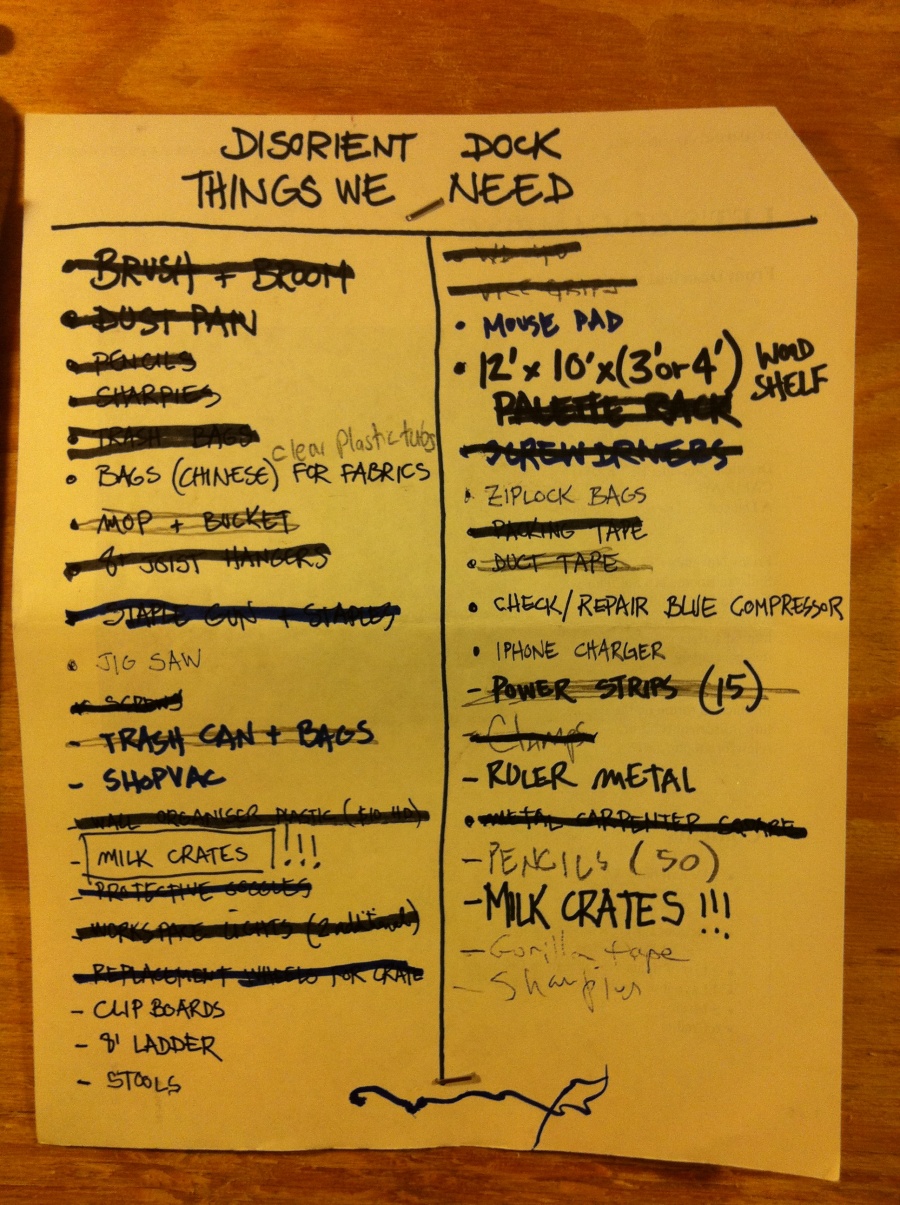 DISORIENT DOCK
THINGS WE NEED
• BRUSH + BROOM
• DUST PAN
• PENCILS
• SHARPIES
• TRASH BAGS
clear Plastic tubs
• BAGS (CHINESE) FOR FABRICS
• MOP + BUCKET
• 8' JOIST HANGERS
• STAPLE GUN + STAPLES
• JIG SAW
• SCREWS
- TRASH CAN + BAGS
- SHOPVAC
- WALL ORGANISER PLASTIC ($10, HD)
- MILK CRATES !!!
- PROTECTIVE GOGGLES
- WORKSPACE LIGHTS (2 additional)
- REPLACEMENT WHEELS FOR CRATE
- CLIP BOARDS
- 8' LADDER
- STOOLS
• WD 40
• VICE GRIPS
• MOUSE PAD
• 12' x 10' x (3' or 4') WOOD
SHELF
PALETTE RACK
• SCREWDRIVERS
• ZIPLOCK BAGS
• PACKING TAPE
• DUCT TAPE
• CHECK/REPAIR BLUE COMPRESSOR
• IPHONE CHARGER
- POWER STRIPS (15)
- Clamps
- RULER METAL
• METAL CARPENTER SQUARE
- PENCILS (50)
- MILK CRATES !!!
- Gorilla tape
- Sharpies